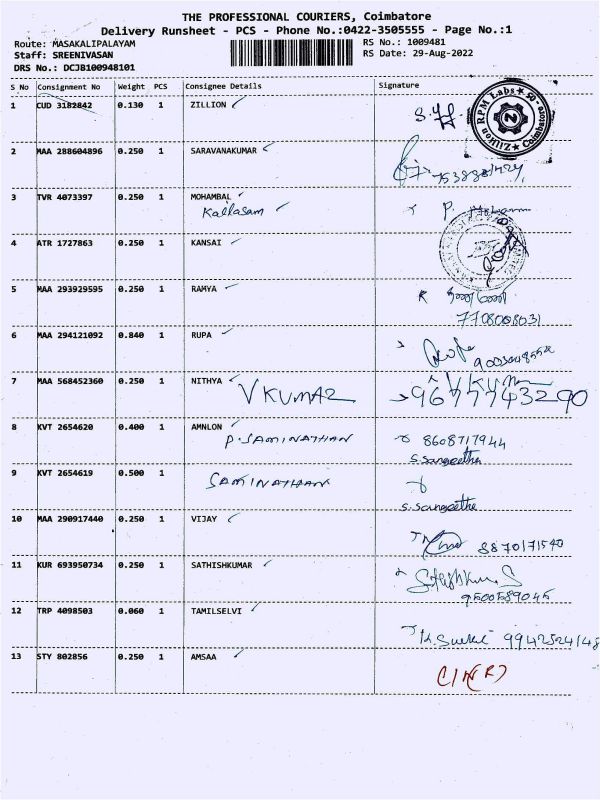 THE PROFESSIONAL COURIERS, Coimbatore
Delivery Runsheet - PCS - Phone No.:0422-3505555 - Page No.:1
Route: MASAKALIPALAYAM RS No.: 1009481
Staff: SREENIVASAN RS Date: 29-Aug-2022
DRS No.: DCJB1009948101
S No Consignment No Weight PCS Consignee Details Signature
1 CUD 3182842 0.130 1 ZILLION
RPM Labs Zillion Coimbatore
2 MAA 288604896 0.250 1 SARAVANAKUMAR
3 TVR 4073397 0.250 1 MOHAMBAL
Kallasam P.
4 ATR 1727863 0.250 1 KANSAI
5 MAA 293929595 0.250 1 RAMYA
7708008031
6 MAA 294121092 0.840 1 RUPA
7 MAA 568452360 0.250 1 NITHYA
V KUMAR V KUMAR
9677743290
8 KVT 2654620 0.400 1 AMNLON
P. SAMINATHAN 8608717944
S. Sangeetha
9 KVT 2654619 0.500 1
SAMINATHAN
S. Sangeetha
10 MAA 290917440 0.250 1 VIJAY
8870171540
11 KUR 693950734 0.250 1 SATHISHKUMAR
Sathishkumar S
9500589045
12 TRP 4098503 0.060 1 TAMILSELVI
9942524148
13 STY 802856 0.250 1 AMSAA